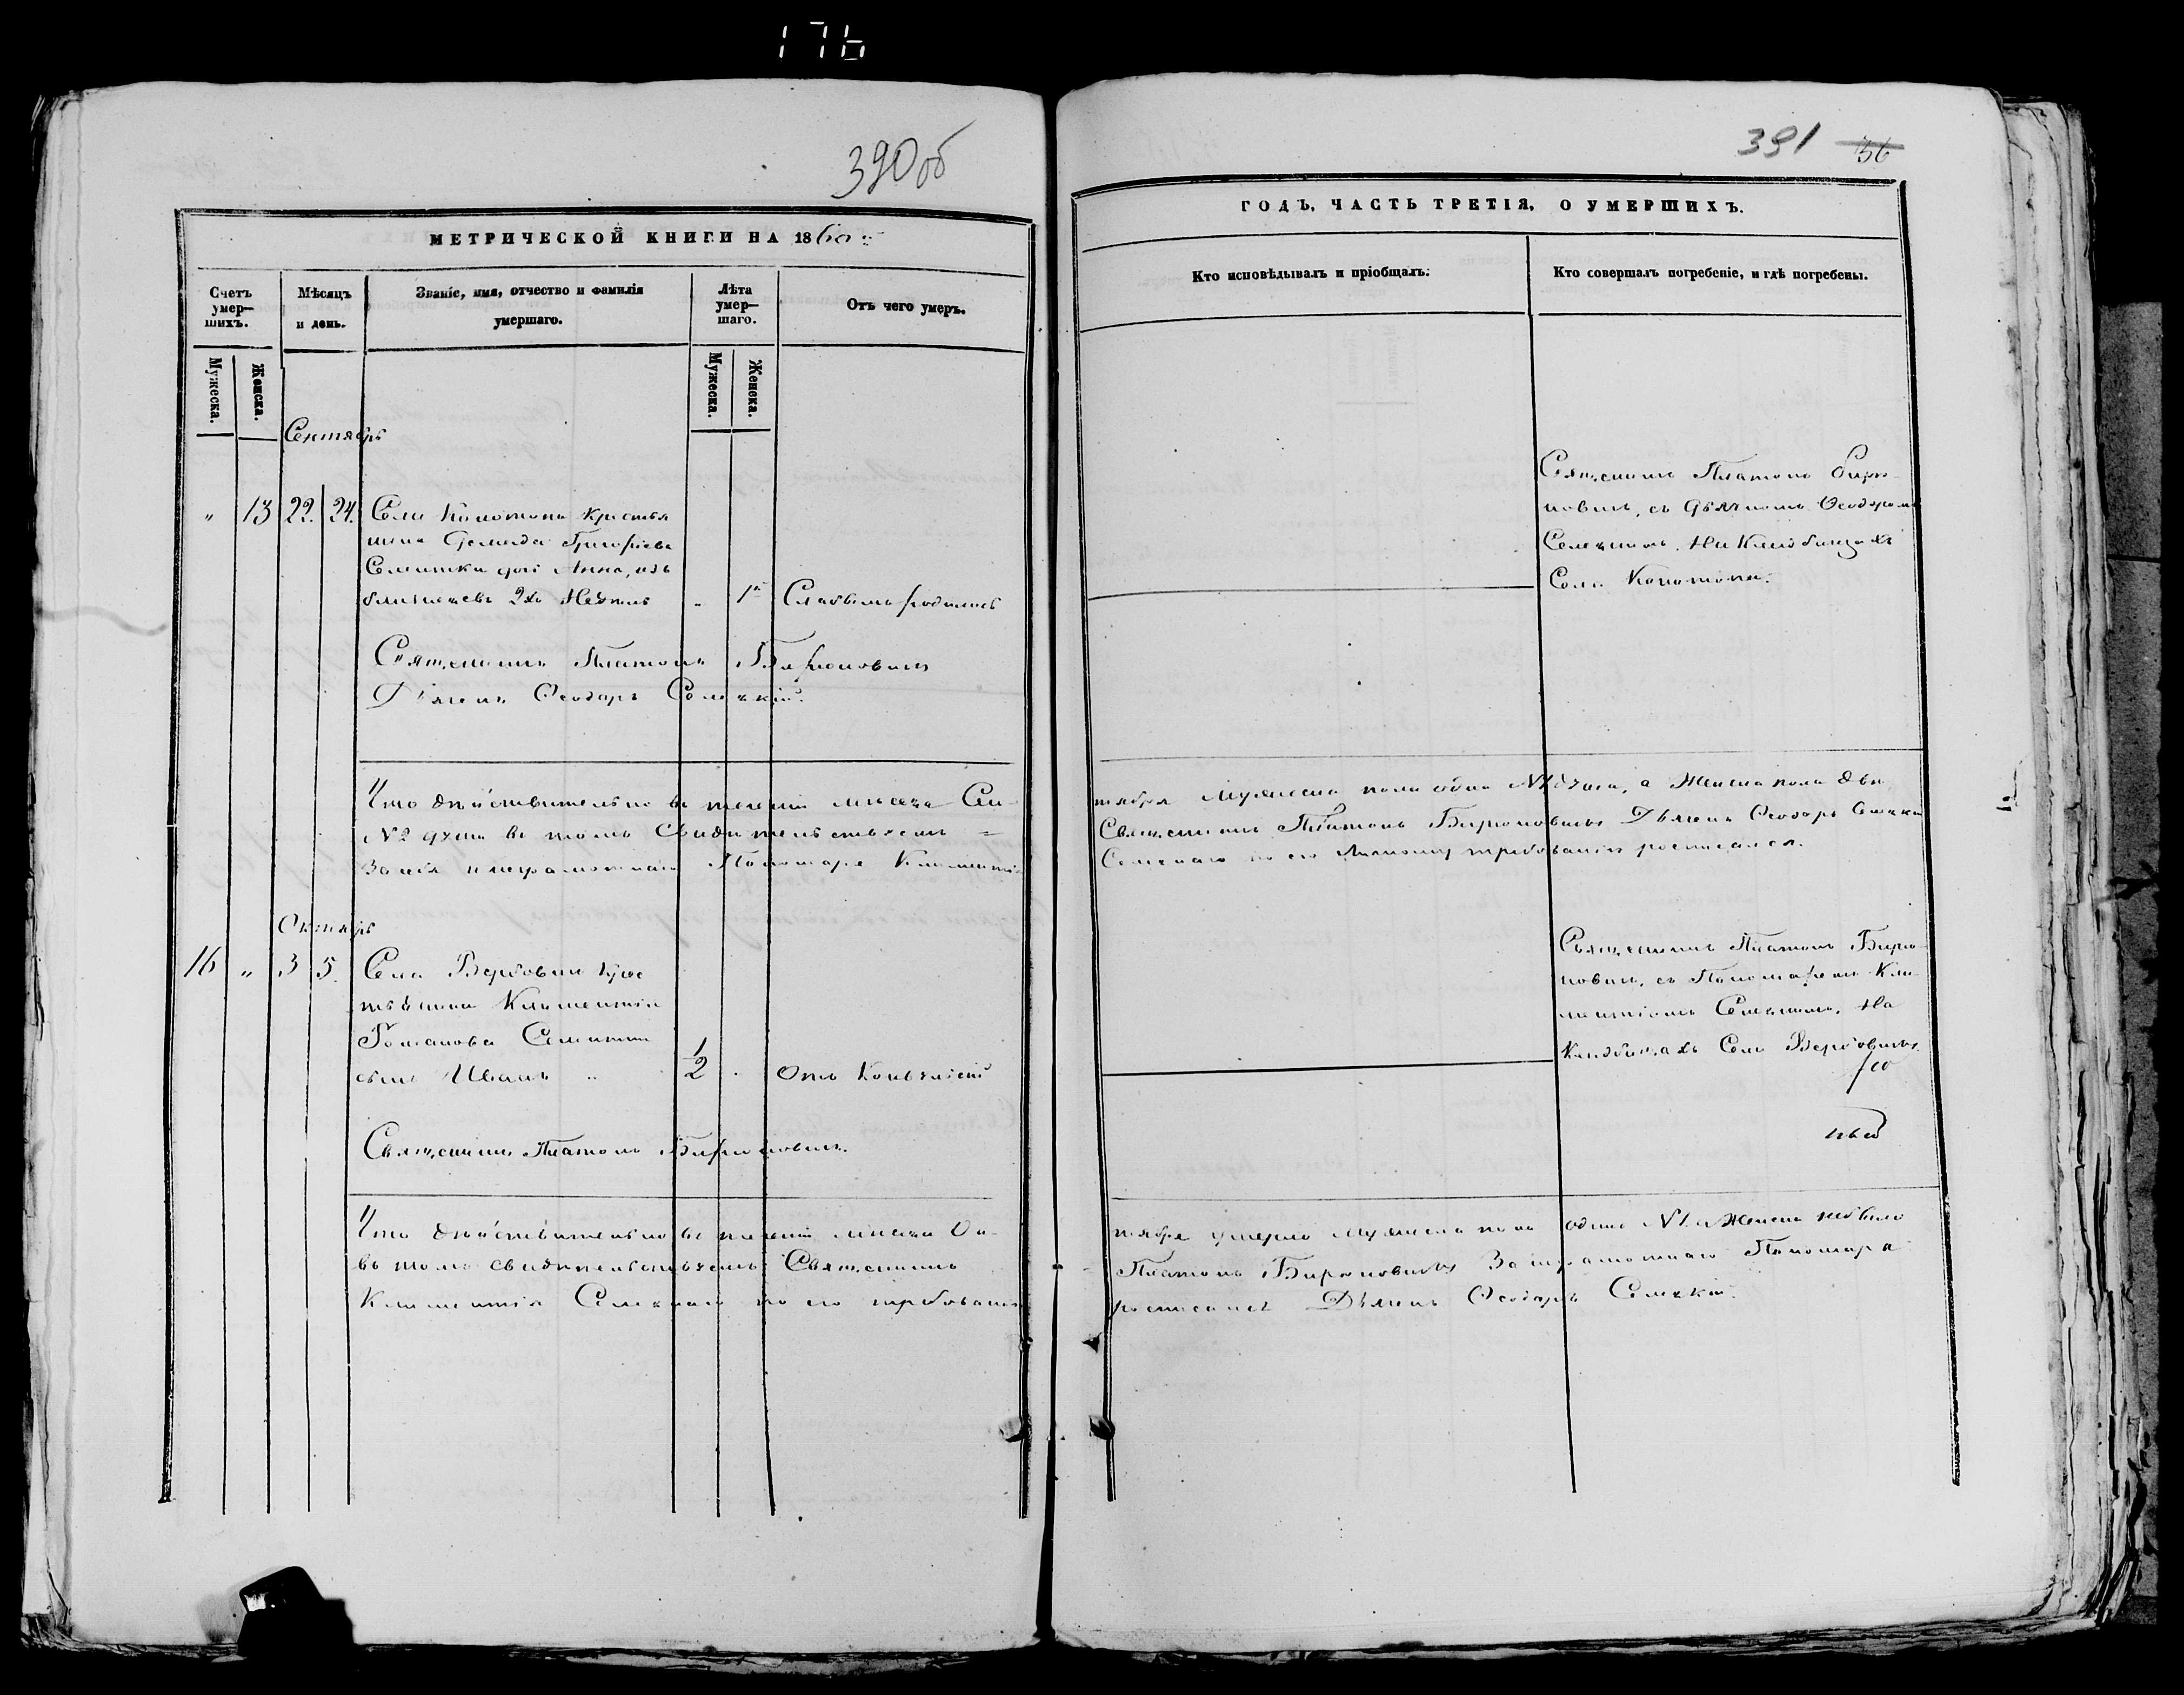 176
390об
МЕТРИЧЕСКОЙ КНИГИ НА 1860
Счетъ умер—шихъ.
Мѣсяцъ и день.
Званіе, имя, отчество и фамилія умершаго.
Лѣта умер—шаго.
Отъ чего умеръ.
Мужеска.
Женска.
Мужеска.
Женска.
Сентябрь
" 13 22. 24. Села Конотопа Крестья
нина Демида Григоріева
Семинка дочь Анна, изъ
близнецевъ 2хъ Недѣль " Слабымъ родилась
Священникъ Платонъ Бирюковичъ
Дьячекъ Ѳеодоръ Селецкій.
Что дѣйствительно въ теченіи мѣсяца Сен-
№2 души въ томъ свидѣтельствуемъ =
За неграмотнаго Пономаря Климентія
Октябрь
16 " 3 5. Села Вербовки Крес
тьянина Климентія
Романова
сынъ Иванъ " 1/2 . Отъ Конвульсій
Священникъ Платонъ Бирюковичъ.
Что дѣйствительно въ теченіи мѣсяца Ок-
въ томъ свидѣтельствуемъ Священникъ
Климентія Селецкаго по его требованію
391 56
ГОДЪ, ЧАСТЬ ТРЕТІЯ, О УМЕРШИХЪ.
Кто исповѣдывалъ и пріобщалъ.
Кто совершалъ погребеніе, и гдѣ погребены.
Священникъ Платонъ Бирю-
ковичъ, съ Дьячкомъ Ѳеодоромъ
Селецкимъ. На Кладбищахъ
Села Конотопа.
тября Мужеска пола одна №1 душа, а Женска пола двѣ
Священникъ Платонъ Бирюковичъ Дьячекъ Ѳеодоръ
Селецкаго по его личному требованію росписался.
Священникъ Платонъ Бирю-
ковичъ, съ Пономаремъ Кли-
ментіемъ Селецкимъ, На
Кладбищахъ Села Вербовки
тября умерло Мужеска пола одна №1. Женска небыло
Платонъ Бирюковичъ За неграмотнаго Пономаря
росписался Дьячекъ Ѳеодоръ Селецкій.